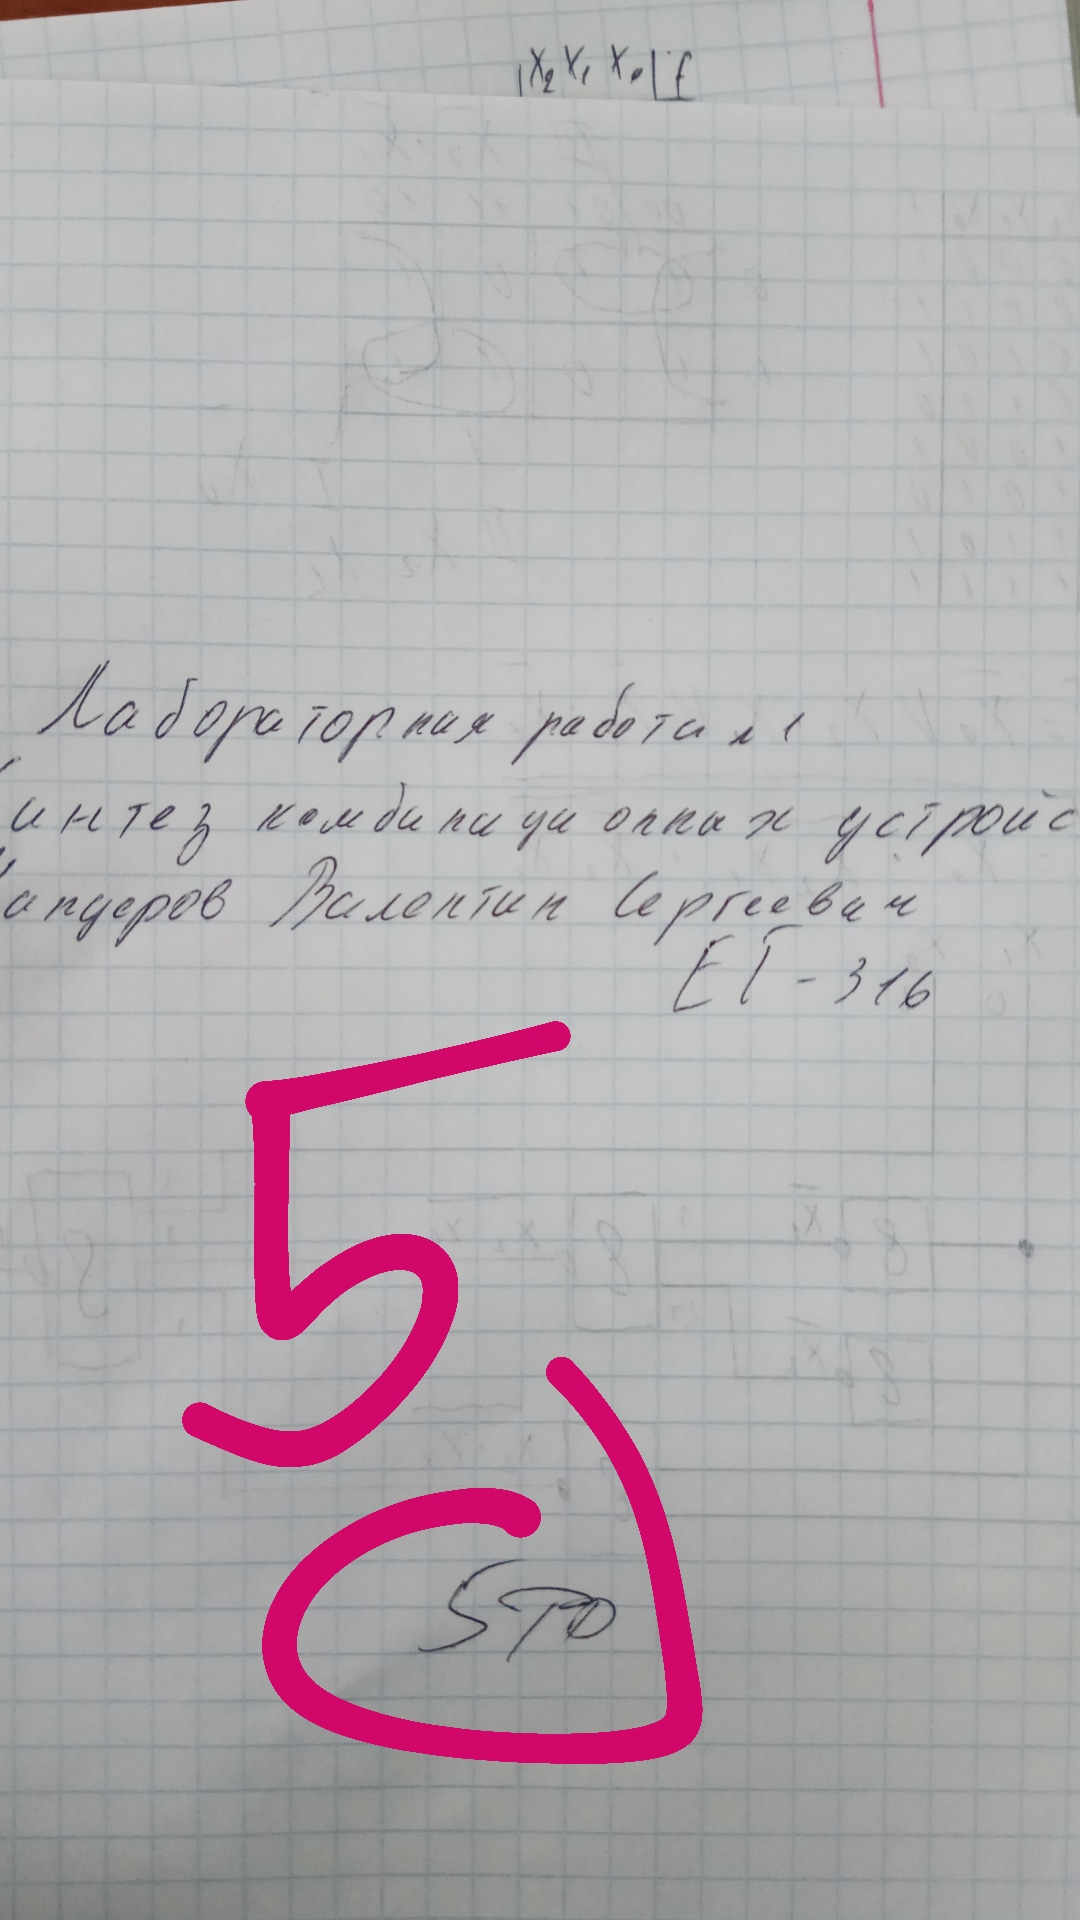 x₂ x₁ x₀ f
Лабораторная работа №1
интез комбинационных устройс
андеров Валентин Сергеевич
ЕТ-316
5